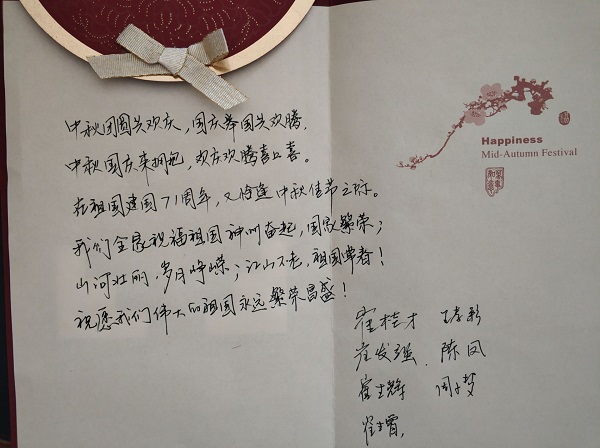 中秋团圆共欢庆，国庆举国共欢腾，
中秋国庆来拥抱，欢庆欢腾喜口喜。
在祖国建国71周年，又恰逢中秋佳节之际。
我们全家祝福祖国神州奋起，国家繁荣；
山河壮丽，岁月峥嵘；江山不老，祖国常春！
祝愿我们伟大的祖国永远繁荣昌盛！
Happiness
Mid-Autumn Festival
崔桂才 王孝彩
崔发强 陈凤